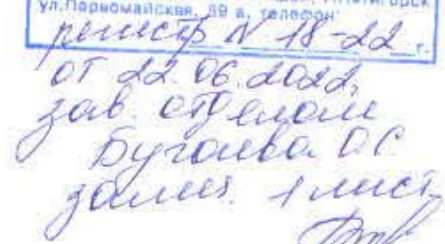 ул.Первомайская, 89 а, телефон:
регистр N 18-22 г.
от 22.06.2022,
зав. отделом
Бугаева О.С
замещ. 1 лист